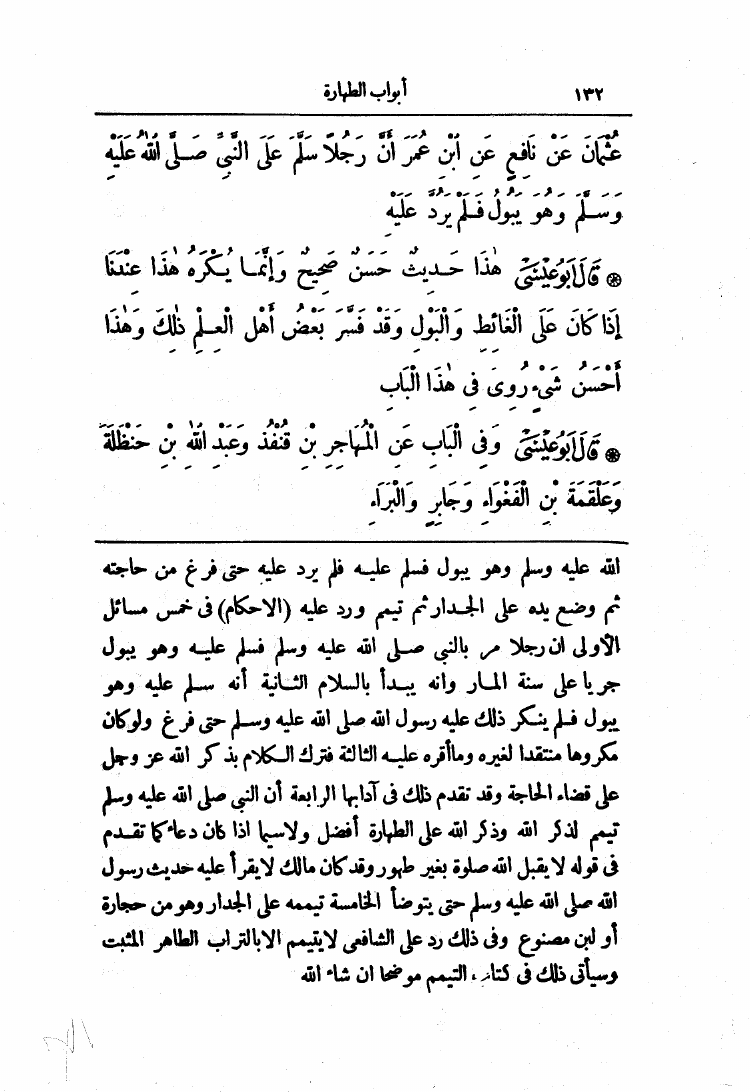 ١٣٢ أبواب الطهارة
عُثْمَانَ عَنْ نَافِعٍ عَنِ ابْنِ عُمَرَ أَنَّ رَجُلاً سَلَّمَ عَلَى النَّبِيِّ صَلَّى اللهُ عَلَيْهِ
وَسَلَّمَ وَهُوَ يَبُولُ فَلَمْ يَرُدَّ عَلَيْهِ
۞ قَالَ أَبُو عِيْسَى هٰذَا حَدِيثٌ حَسَنٌ صَحِيحٌ وَإِنَّمَا يُكْرَهُ هٰذَا عِنْدَنَا
إِذَا كَانَ عَلَى الْغَائِطِ وَالْبَوْلِ وَقَدْ فَسَّرَ بَعْضُ أَهْلِ الْعِلْمِ ذٰلِكَ وَهٰذَا
أَحْسَنُ شَيْءٍ رُوِىَ فِى هٰذَا الْبَابِ
۞ قَالَ أَبُو عِيْسَى وَفِى الْبَابِ عَنِ الْمُهَاجِرِ بْنِ قُنْفُذٍ وَعَبْدِ اللهِ بْنِ حَنْظَلَةَ
وَعَلْقَمَةَ بْنِ الْفَغْوَاءِ وَجَابِرٍ وَالْبَرَاءِ
الله عليه وسلم وهو يبول فسلم عليه فلم يرد عليه حتى فرغ من حاجته
ثم وضع يده على الجدار ثم تيمم ورد عليه (الاحكام) فى خمس مسائل
الأولى ان رجلا مر بالنبى صلى الله عليه وسلم فسلم عليه وهو يبول
جريا على سنة المار وانه يبدأ بالسلام الثانية أنه سلم عليه وهو
يبول فلم ينكر ذلك عليه رسول الله صلى الله عليه وسلم حتى فرغ ولو كان
مكروها منتقدا لغيره وما أقره عليه الثالثة فترك الكلام بذكر الله عز وجل
على قضاء الحاجة وقد تقدم ذلك فى آدابها الرابعة أن النبى صلى الله عليه وسلم
تيمم لذكر الله وذكر الله على الطهارة أفضل ولاسيما اذا كان دعاء كما تقدم
فى قوله لا يقبل الله صلوة بغير طهور وقد كان مالك لا يقرأ عليه حديث رسول
الله صلى الله عليه وسلم حتى يتوضأ الخامسة تيممه على الجدار وهو من حجارة
أو لبن مصنوع وفى ذلك رد على الشافعى لا يتيمم الا بالتراب الطاهر المثبت
وسيأتى ذلك فى كتاب التيمم موضحا ان شاء الله